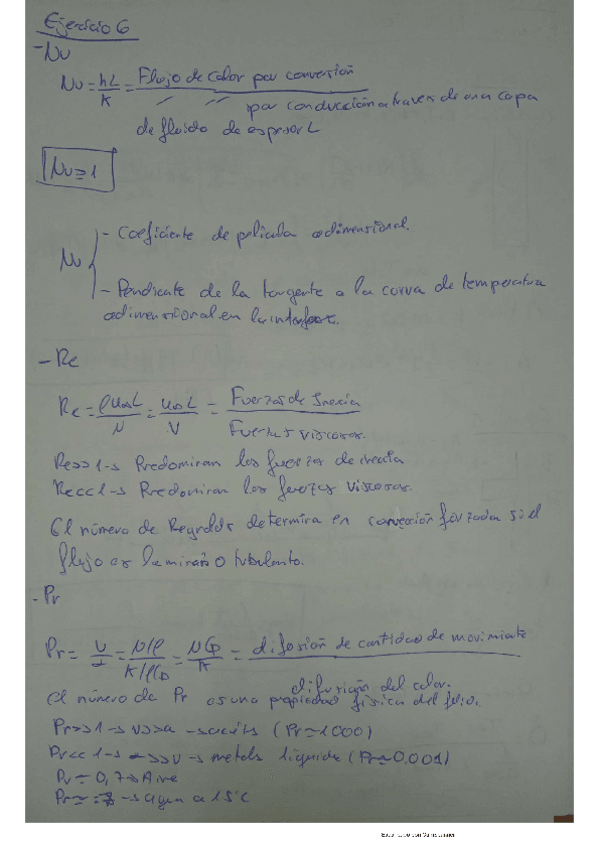 Ejercicio 6
- Nu
Nu = hL/K = Flujo de calor por conversión / " " por conducción a traves de una capa
de fluido de espesor L
Nu ≥ 1
Nu { - Coeficiente de pelicula adimensional.
- Pendiente de la tangente a la curva de temperatura
adimensional en la interfase.
- Re
Re = ρu∞L/μ = u∞L/ν = Fuerzas de Inercia / Fuerzas viscosas.
Re>>1 → Predominan las fuerzas de inercia
Re<<1 → Predominan las fuerzas viscosas.
El número de Reynolds determina en convección forzada si el
flujo es laminar o turbulento.
- Pr
Pr = ν/α = μ/ρ / K/ρCp = μCp/K = difusión de cantidad de movimiento / difusión del calor.
El número de Pr es una propiedad física del fluido.
Pr>>1 → ν>>α → aceites (Pr≃1000)
Pr<<1 → α>>ν → metals liquids (Pr≃0,001)
Pr ≃ 0,7 → Aire
Pr ≃ 7 → agua a 15°C